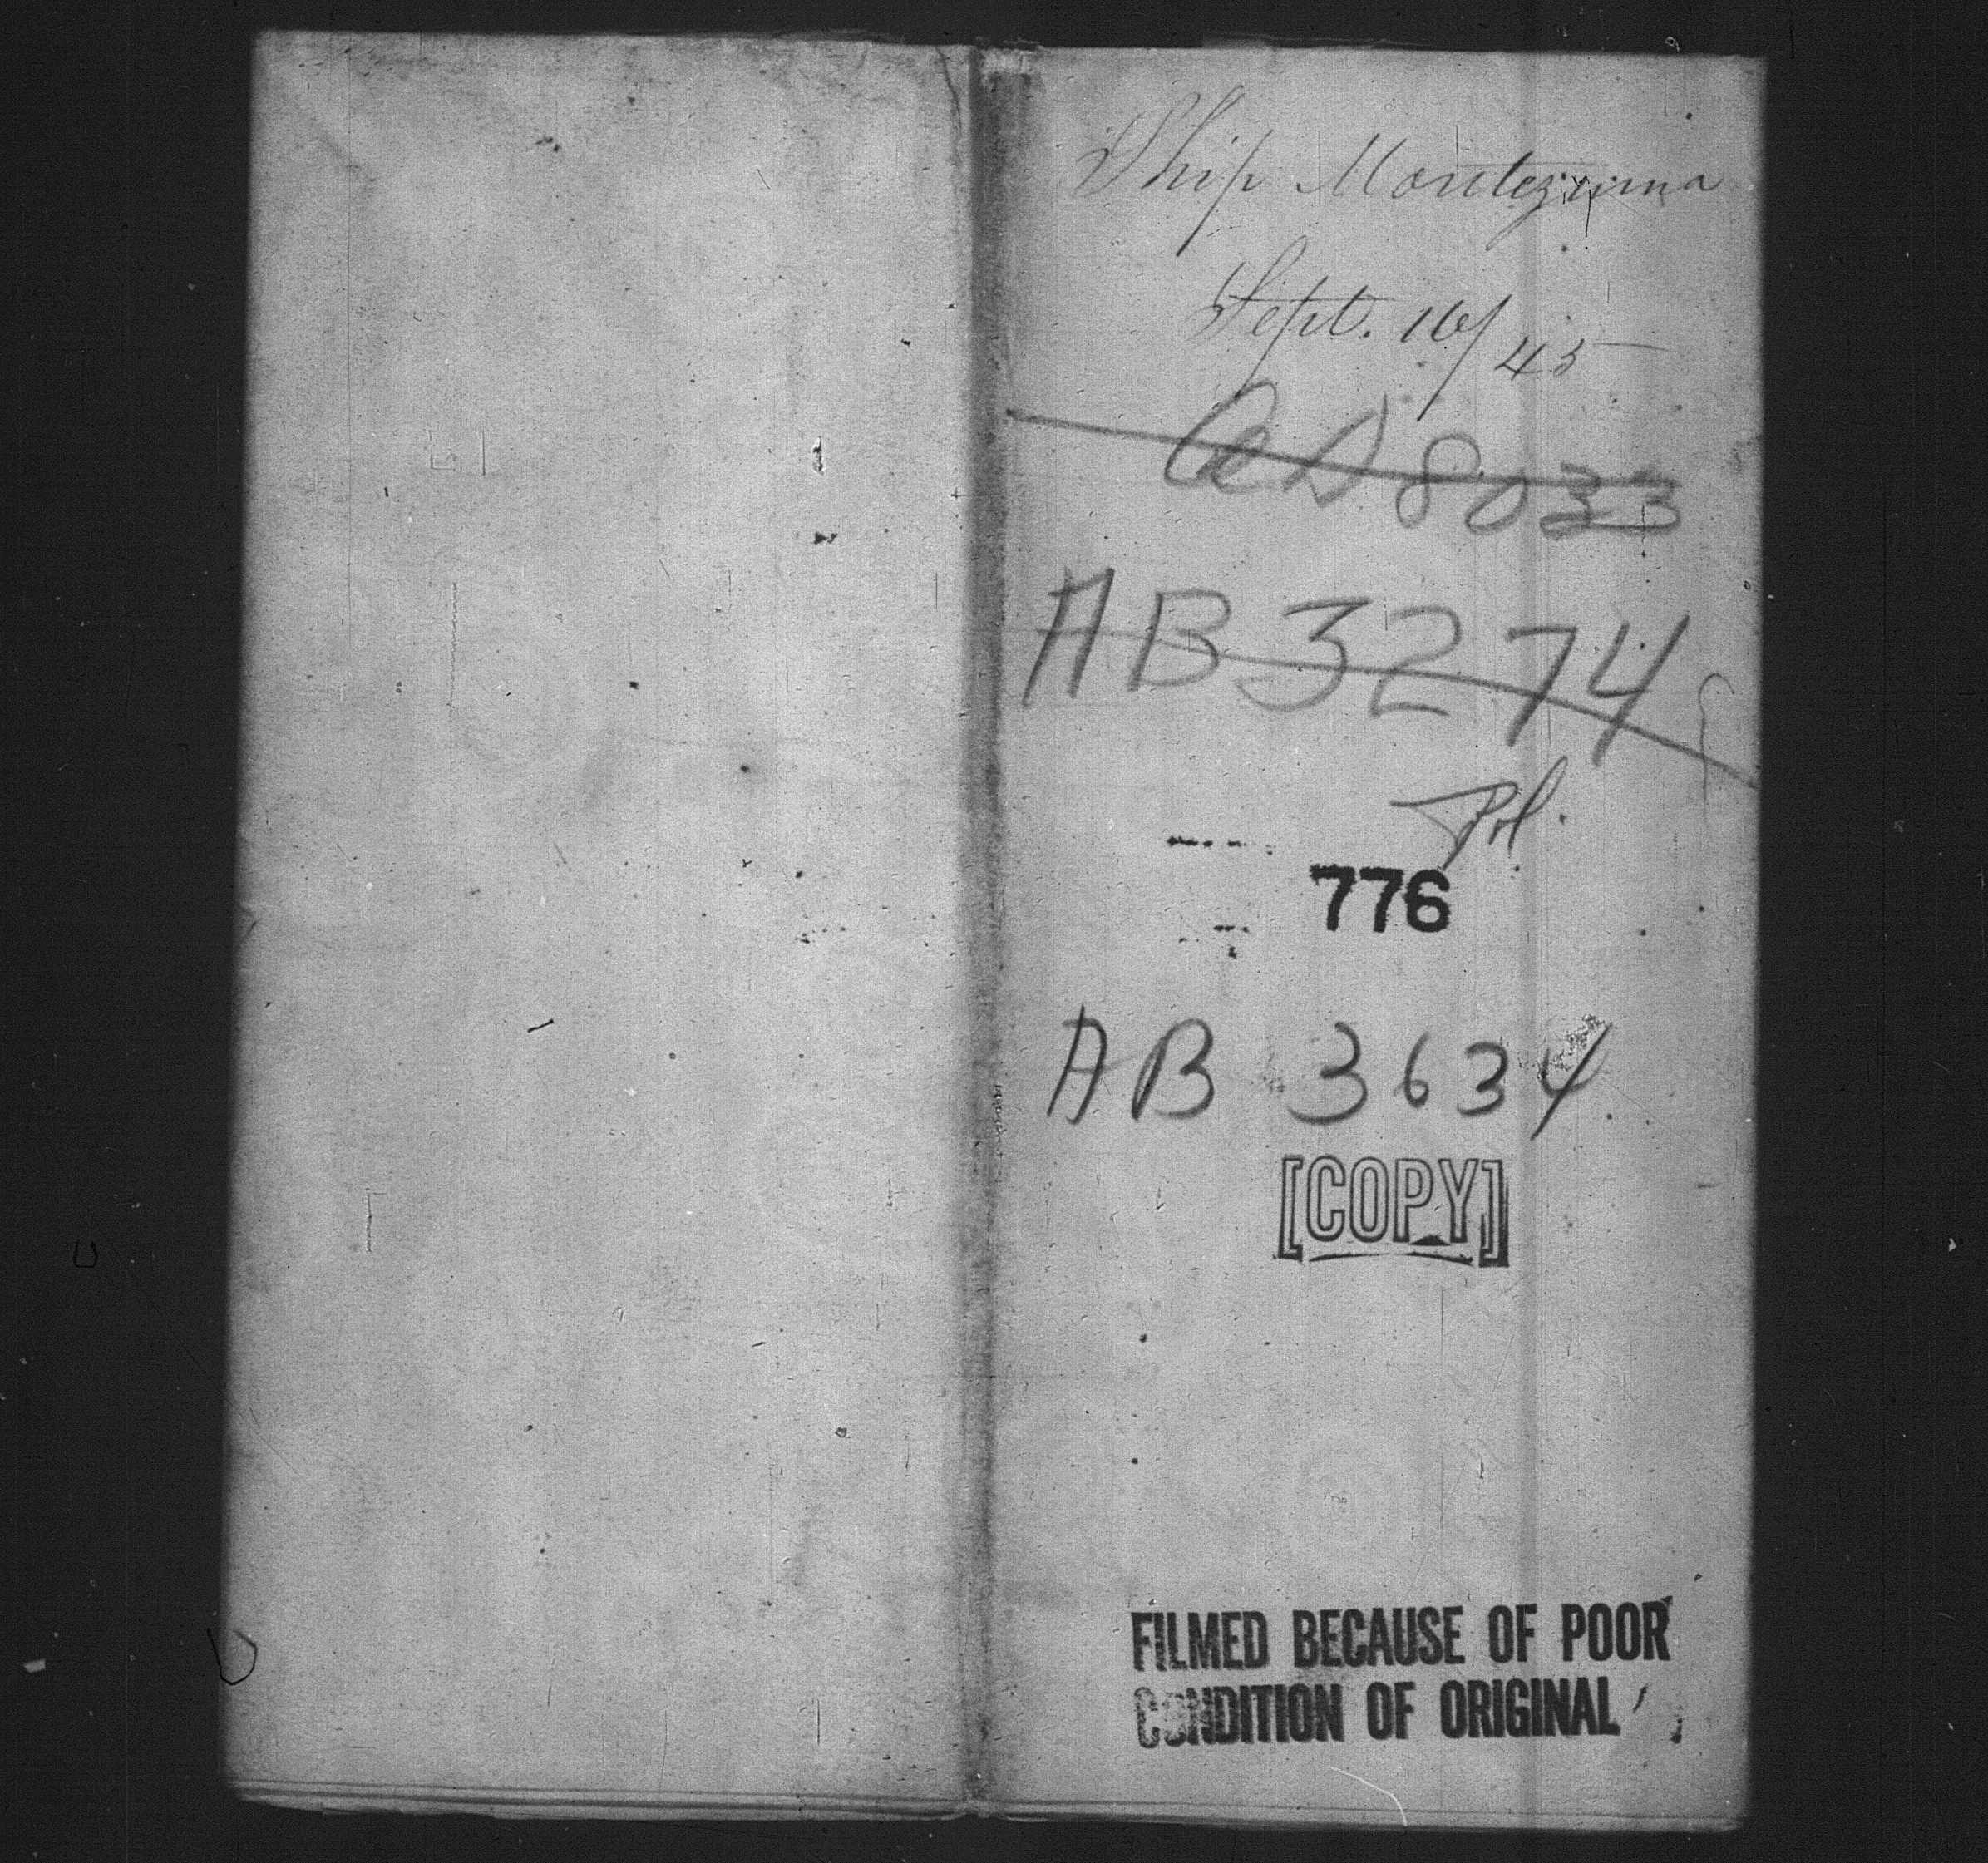 Ship Montezuma
Sept. 16/45
AB 3274
776
AB 3634
[COPY]
FILMED BECAUSE OF POOR
CONDITION OF ORIGINAL